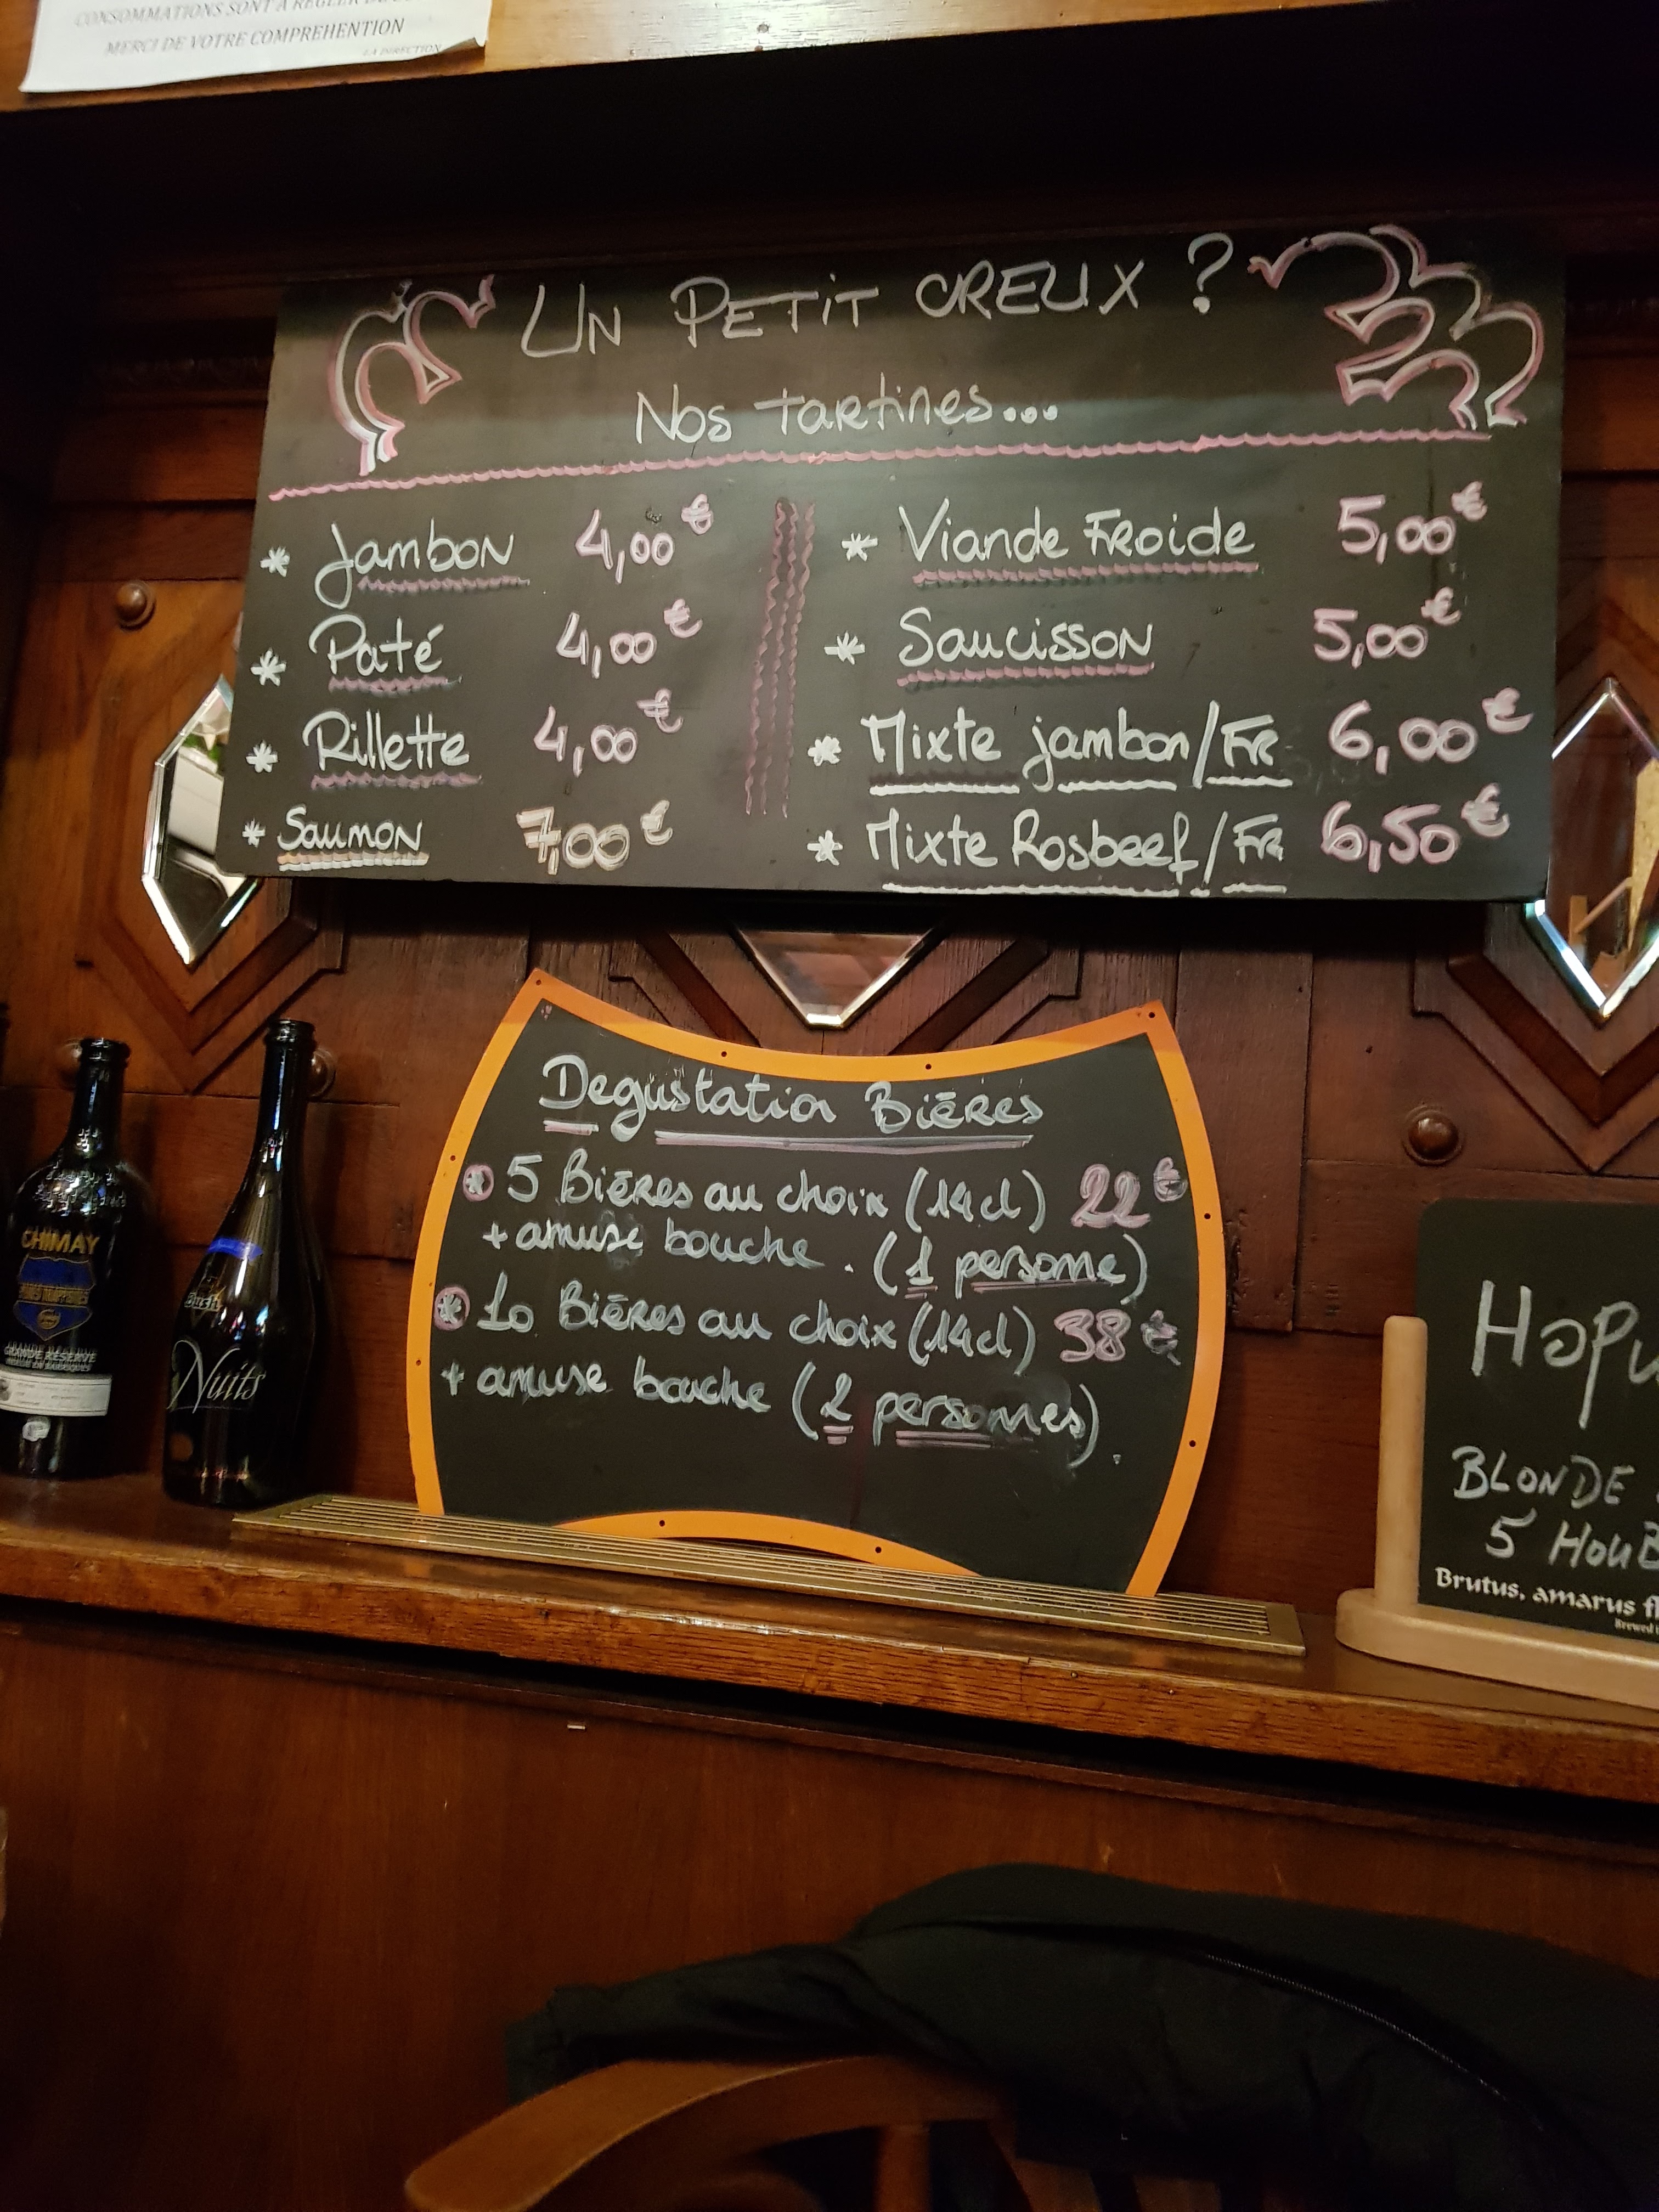 CONSOMMATIONS SONT A REGLER
MERCI DE VOTRE COMPREHENTION
LA DIRECTION
UN PETIT CREUX ?
Nos tartines...
* Jambon 4,00€
* Paté 4,00€
* Rillette 4,00€
* Saumon 7,00€
* Viande FRoide 5,00€
* Saucisson 5,00€
* Mixte jambon/FR 6,00€
* Mixte Rosbeef/FR 6,50€
Degustation Biēres
* 5 Biēres au choix (14cl) 22€
+ amuse bouche. (1 persone)
* 10 Biēres au choix (14cl) 38€
+ amuse bouche (2 personnes).
CHIMAY
GRANDE RESERVE
Bush
Nuits
Hopu
BLONDE
5 HOUB
Brutus, amarus fl
Brewed